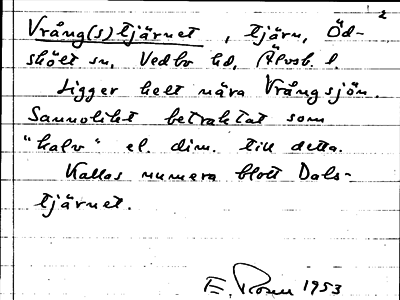 2
Vrång(s)tjärnet, tjärn, Öd-
skölt sn, Vedbo hd, Älvsb. l.
Ligger helt nära Vrångsjön.
Sannolikt betraktat som
"kalv" el. dim. till detta.
Kallas numera blott Dals-
tjärnet.
E. 1953